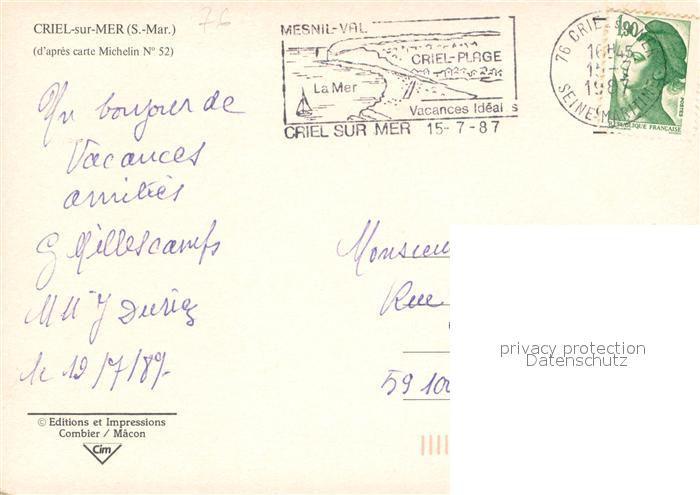 CRIEL-sur-MER (S.-Mar.)
(d'après carte Michelin N° 52)
76
MESNIL-VAL
CRIEL-PLAGE
La Mer
Vacances Idéales
CRIEL SUR MER 15-7-87
76 CRIEL
16H45
15-7
1987
SEINE MARITIME
1,90
POSTES
REPUBLIQUE FRANÇAISE
Un bonjour de
Vacances
amitiés
G Millescamps
Mlle J
le 12/7/87
Monsieur
Rue
59100
privacy protection
Datenschutz
© Editions et Impressions
Combier / Mâcon
Cim